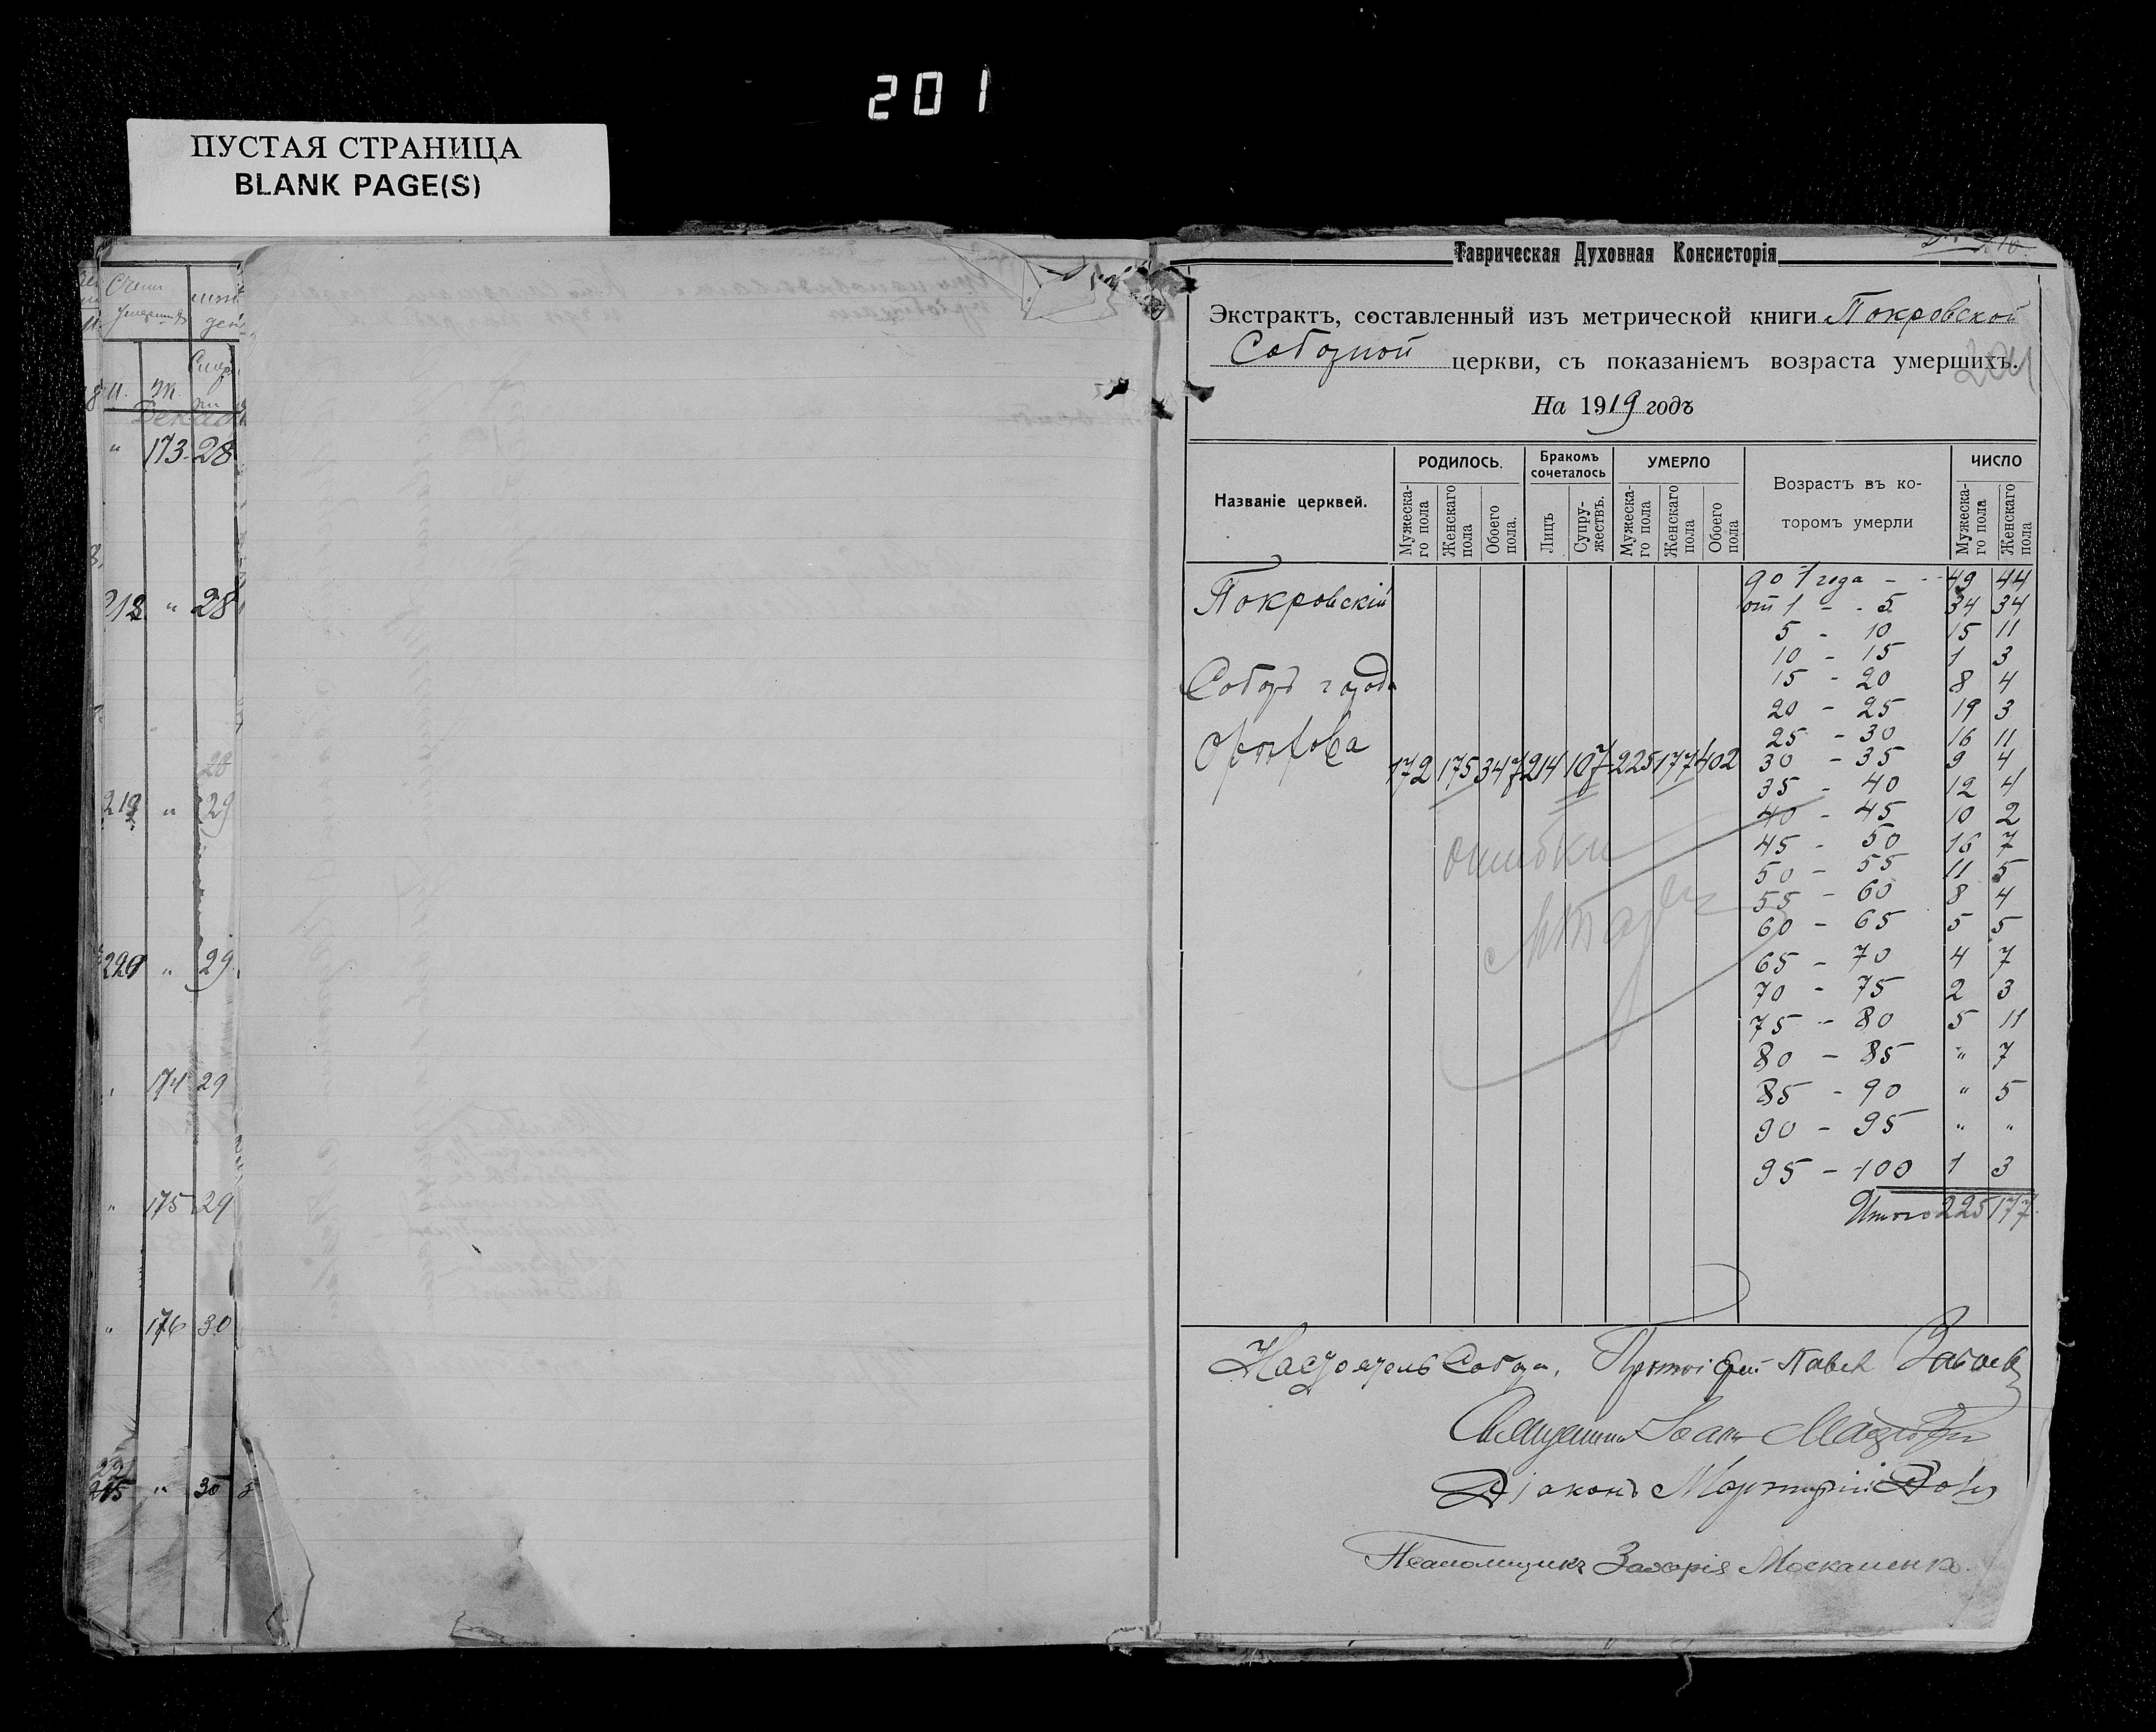 201
ПУСТАЯ СТРАНИЦА
BLANK PAGE(S)
Счетъ
умершихъ
М. Ж.
" 173 28
218 " 28
28
219 " 29
220 " 29
174 29
" 175 29
" 176 30
" 30
Таврическая Духовная Консисторія
201
Экстрактъ, составленный изъ метрической книги Покровской
Соборной церкви, съ показаніемъ возраста умершихъ.
На 1919 годъ
Названіе церквей.
РОДИЛОСЬ.
Мужеска-го пола
Женскаго пола
Обоего пола.
Бракомъ сочеталось
Лицъ
Супру-жествъ.
УМЕРЛО
Мужеска-го пола
Женскаго пола
Обоего пола
Возрастъ въ ко-
торомъ умерли
ЧИСЛО
Мужеска-го пола
Женскаго пола
Покровскій
Соборъ города
Орѣхова
172 175 347 214 107 225 177 402
ошибки
до 1 года - 49 44
от 1 - 5 34 34
5 - 10 15 11
10 - 15 1 3
15 - 20 8 4
20 - 25 19 3
25 - 30 16 11
30 - 35 9 4
35 - 40 12 4
40 - 45 10 2
45 - 50 16 7
50 - 55 11 5
55 - 60 8 4
60 - 65 5 5
65 - 70 4 7
70 - 75 2 3
75 - 80 5 11
80 - 85 " 7
85 - 90 " 5
90 - 95 " "
95 - 100 1 3
Итого 225 177
Настоятель Собора, Протоіерей Павел
Священникъ Іоаннъ
Діаконъ Мартирій
Псаломщикъ Захарія Москаленко.